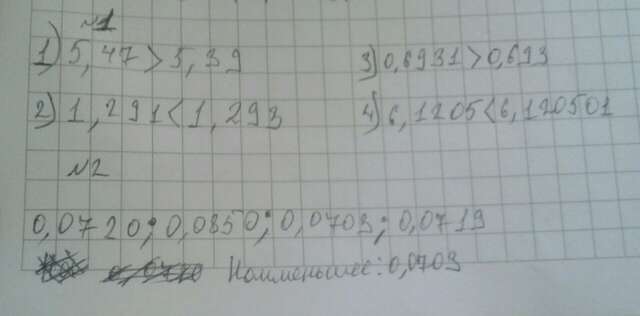 №1
1) 5,47 > 5,39
3) 0,6931 > 0,693
2) 1,291 < 1,293
4) 6,1205 < 6,120501
№2
0,0720; 0,0850; 0,0703; 0,0719
Наименьшее: 0,0703